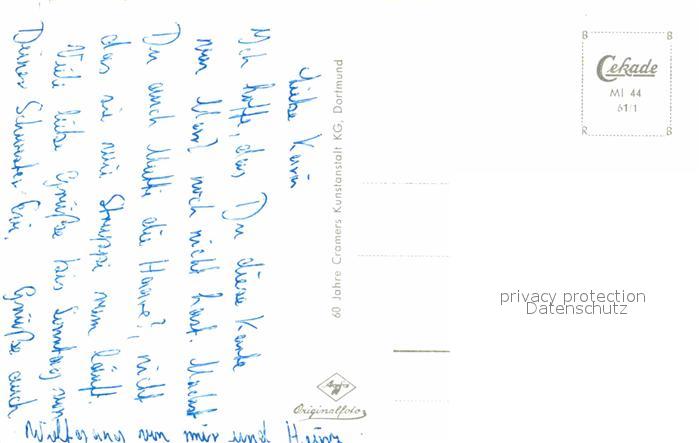 Liebe Karin
Ich hoffe, das Du diese Karte
von Marl noch nicht hast. Machst
Du auch Mutti die Haare?, nicht
das sie wie Struppi rum läuft.
Viele liebe Grüße bis Sonntag von
Deiner Schwester Evi. Grüße auch
von mir und Heinz
60 Jahre Cramers Kunstanstalt KG, Dortmund
Cekade
MI 44
61/1
B B
R B
Agfa
Originalfoto
privacy protection
Datenschutz